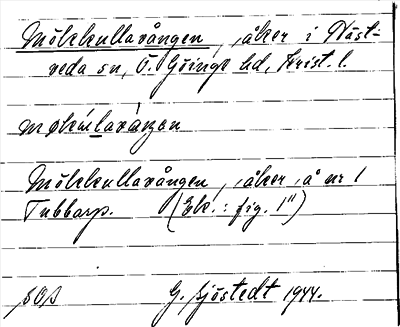 Mölkkullavången, åker i Näst-
veda sn, Ö. Göinge hd, Krist. l.
Mölkkullavången, åker å nr 1
Tubbarp. (Ek.: fig. 1")
G. Sjöstedt 1944.